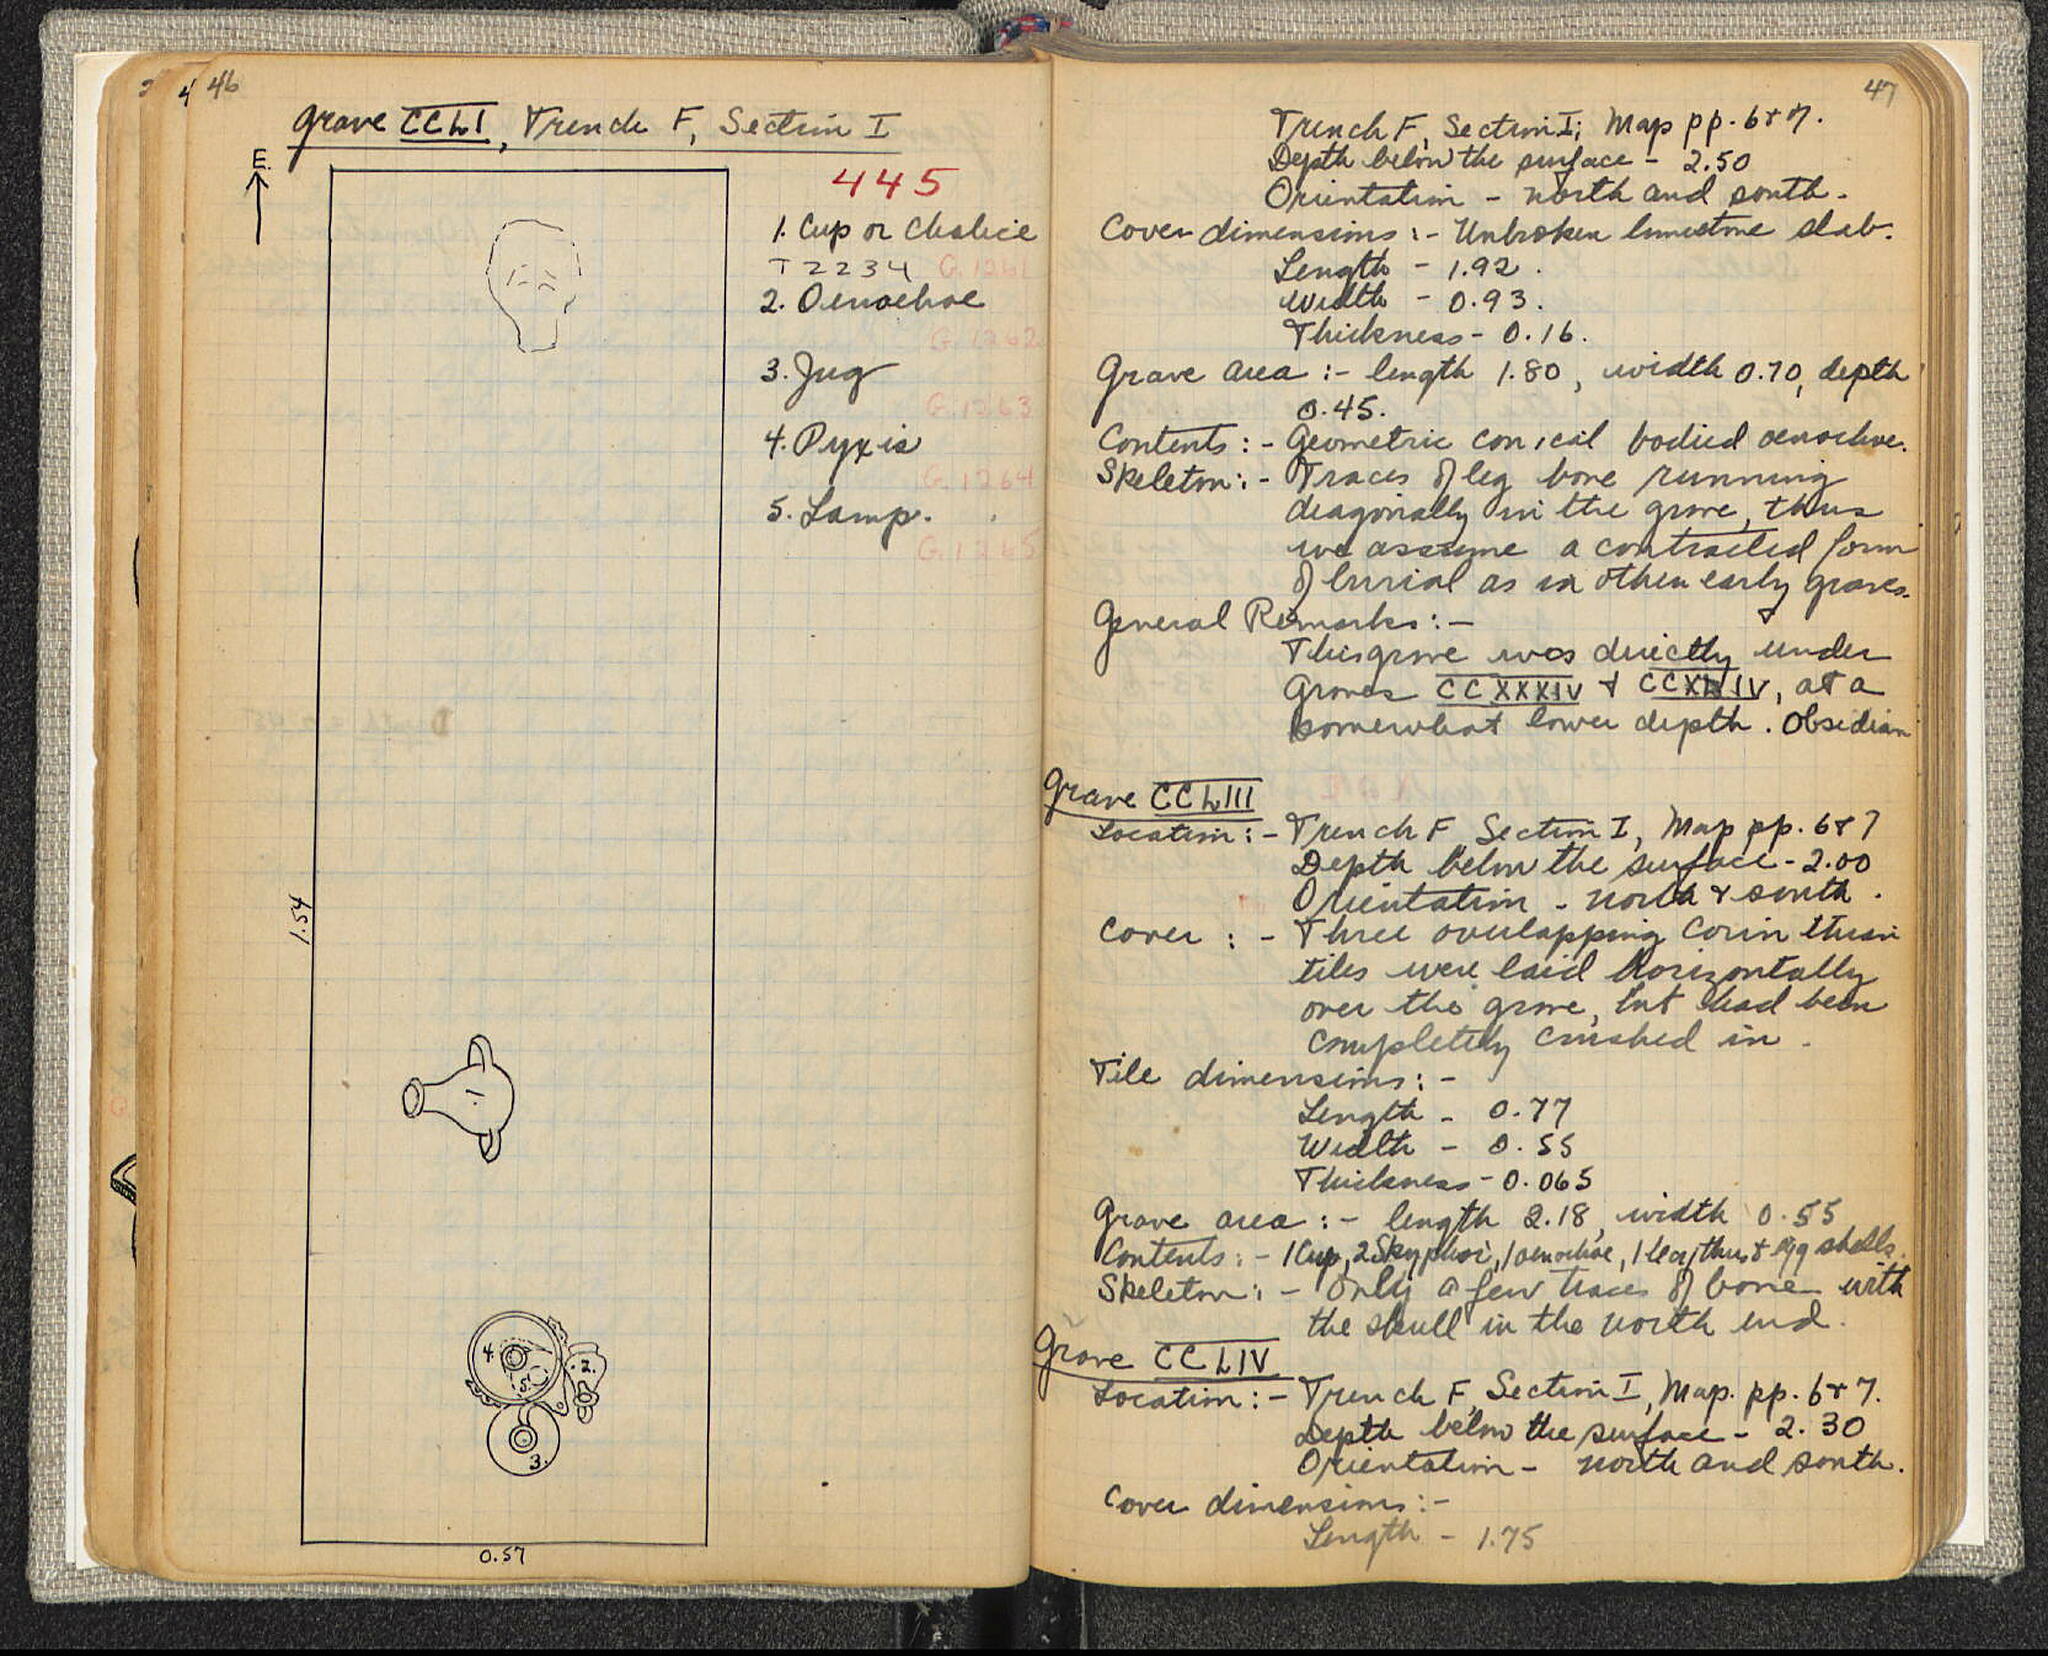 46
Grave CCLI, Trench F, Section I
E.
445
1. Cup or Chalice
T 2234 G. 1261
2. Oenochoe
G. 1262
3. Jug
G. 1263
4. Pyxis
G. 1264
5. Lamp.
G. 1265
1.54
1
4.
2.
5.
3.
0.57
47
Trench F, Section I; Map pp. 6 & 7.
Depth below the surface - 2.50
Orientation - north and south.
Cover dimensions :- Unbroken limestone slab.
Length - 1.92.
Width - 0.93.
Thickness - 0.16.
Grave area :- length 1.80, width 0.70, depth
0.45.
Contents :- Geometric conical bodied oenochoe.
Skeleton :- Traces of leg bone running
diagonally in the grave, thus
we assume a contracted form
of burial as in other early graves.
General Remarks :-
This grave was directly under
Graves CCXXXIV & CCXLIV, at a
somewhat lower depth. Obsidian
Grave CCLIII
Location :- Trench F Section I, Map pp. 6 & 7
Depth below the surface - 2.00
Orientation - north & south.
Cover :- Three overlapping Corinthian
tiles were laid horizontally
over the grave, but had been
completely crushed in.
Tile dimensions :-
Length - 0.77
Width - 0.55
Thickness - 0.065
Grave area :- length 2.18, width 0.55
Contents :- 1 Cup, 2 Skyphoi, 1 oenochoe, 1 lekythus & egg shells.
Skeleton :- Only a few traces of bone with
the skull in the north end.
Grave CCLIV
Location :- Trench F, Section I, Map. pp. 6 & 7.
Depth below the surface - 2.30
Orientation - north and south.
Cover dimensions :-
Length - 1.75